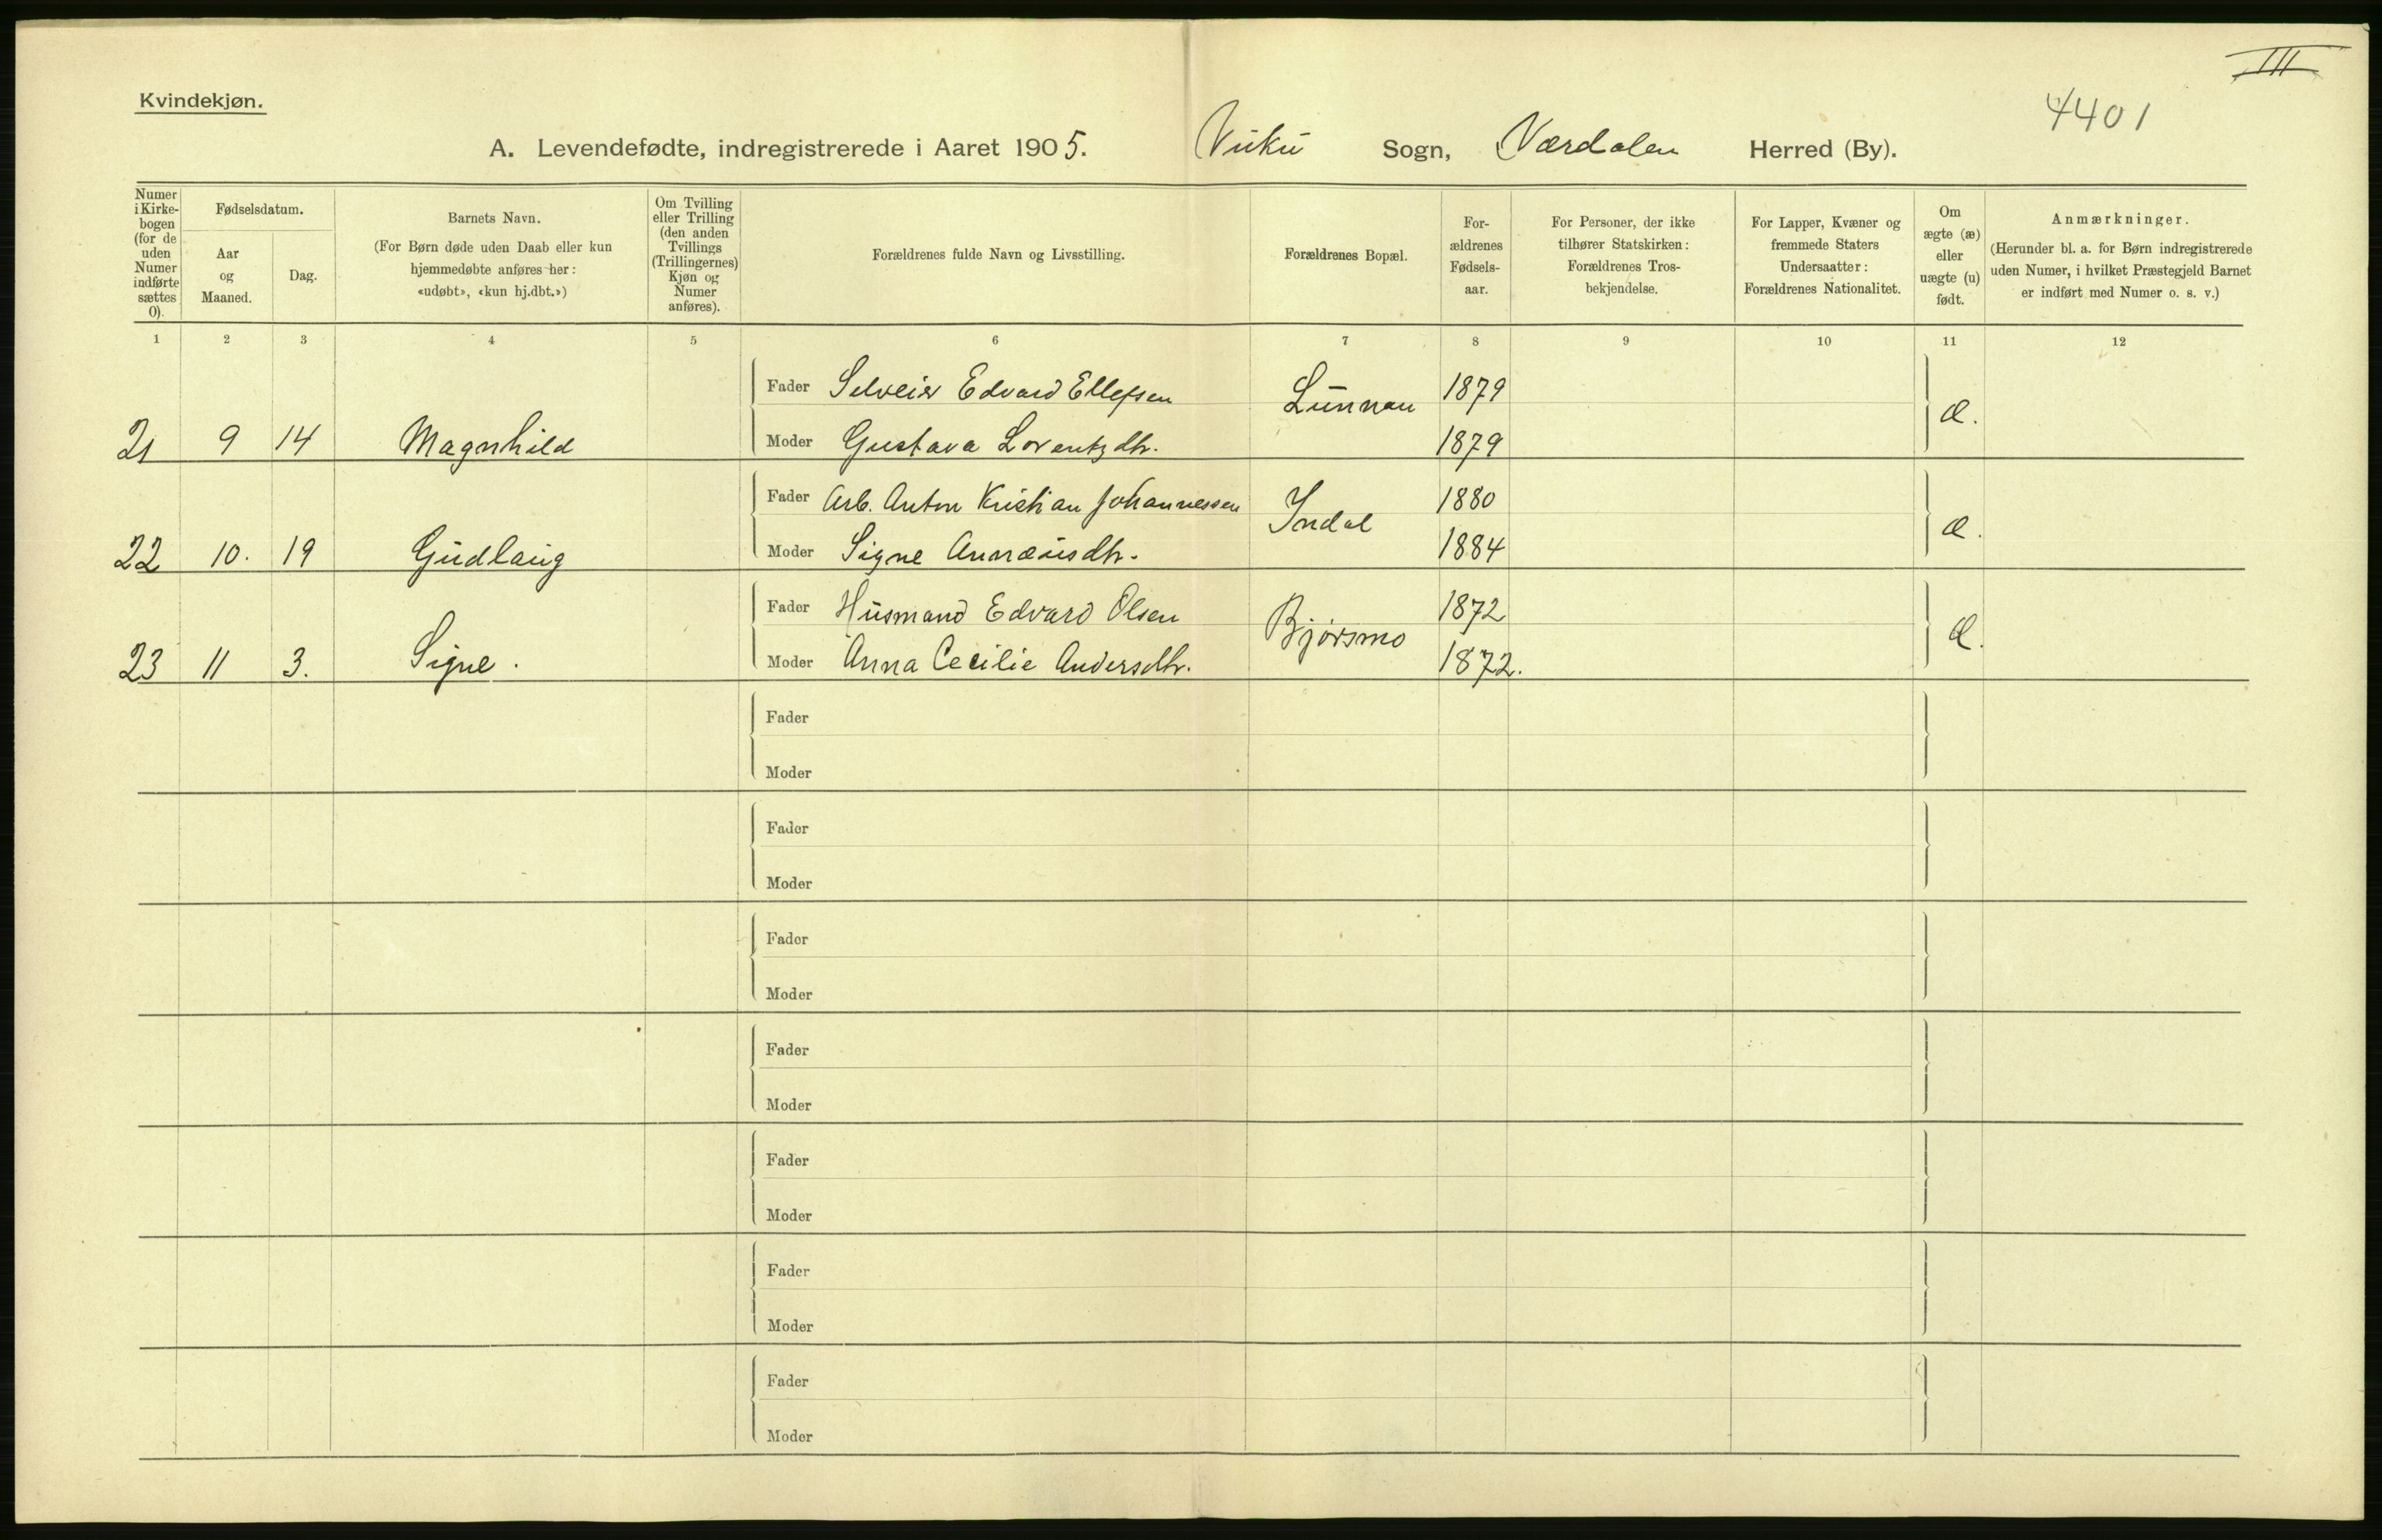 III
4401
Kvindekjøn.
A. Levendefødte, indregistrerede i Aaret 1905. Vuku Sogn, Værdalen Herred (By).
Numer i Kirkebogen (for de uden Numer indførte sættes 0).
Fødselsdatum.
Aar og Maaned.
Dag.
Barnets Navn.
(For Børn døde uden Daab eller kun
hjemmedøbte anføres her:
«udøbt», «kun hj.dbt.»)
Om Tvilling
eller Trilling
(den anden
Tvillings
(Trillingernes)
Kjøn og
Numer
anføres).
Forældrenes fulde Navn og Livsstilling.
Forældrenes Bopæl.
For-
ældrenes
Fødsels-
aar.
For Personer, der ikke
tilhører Statskirken:
Forældrenes Tros-
bekjendelse.
For Lapper, Kvæner og
fremmede Staters
Undersaatter:
Forældrenes Nationalitet.
Om
ægte (æ)
eller
uægte (u)
født.
Anmærkninger.
(Herunder bl. a. for Børn indregistrerede
uden Numer, i hvilket Præstegjeld Barnet
er indført med Numer o. s. v.)
1 2 3 4 5 6 7 8 9 10 11 12
Fader Selveier Edvard Ellefsen Lunnan 1879 æ.
21 9 14 Magnhild Moder Gustava Lorentzdtr. 1879
Fader Arb. Anton Kristian Johannessen Indal 1880 æ.
22 10. 19 Gudlaug Moder Signe Annæusdtr. 1884
Fader Husmand Edvard Olsen Bjørsmo 1872 æ.
23 11 3. Signe. Moder Anna Cecilie Andersdtr. 1872.
Fader
Moder
Fader
Moder
Fader
Moder
Fader
Moder
Fader
Moder
Fader
Moder
Fader
Moder